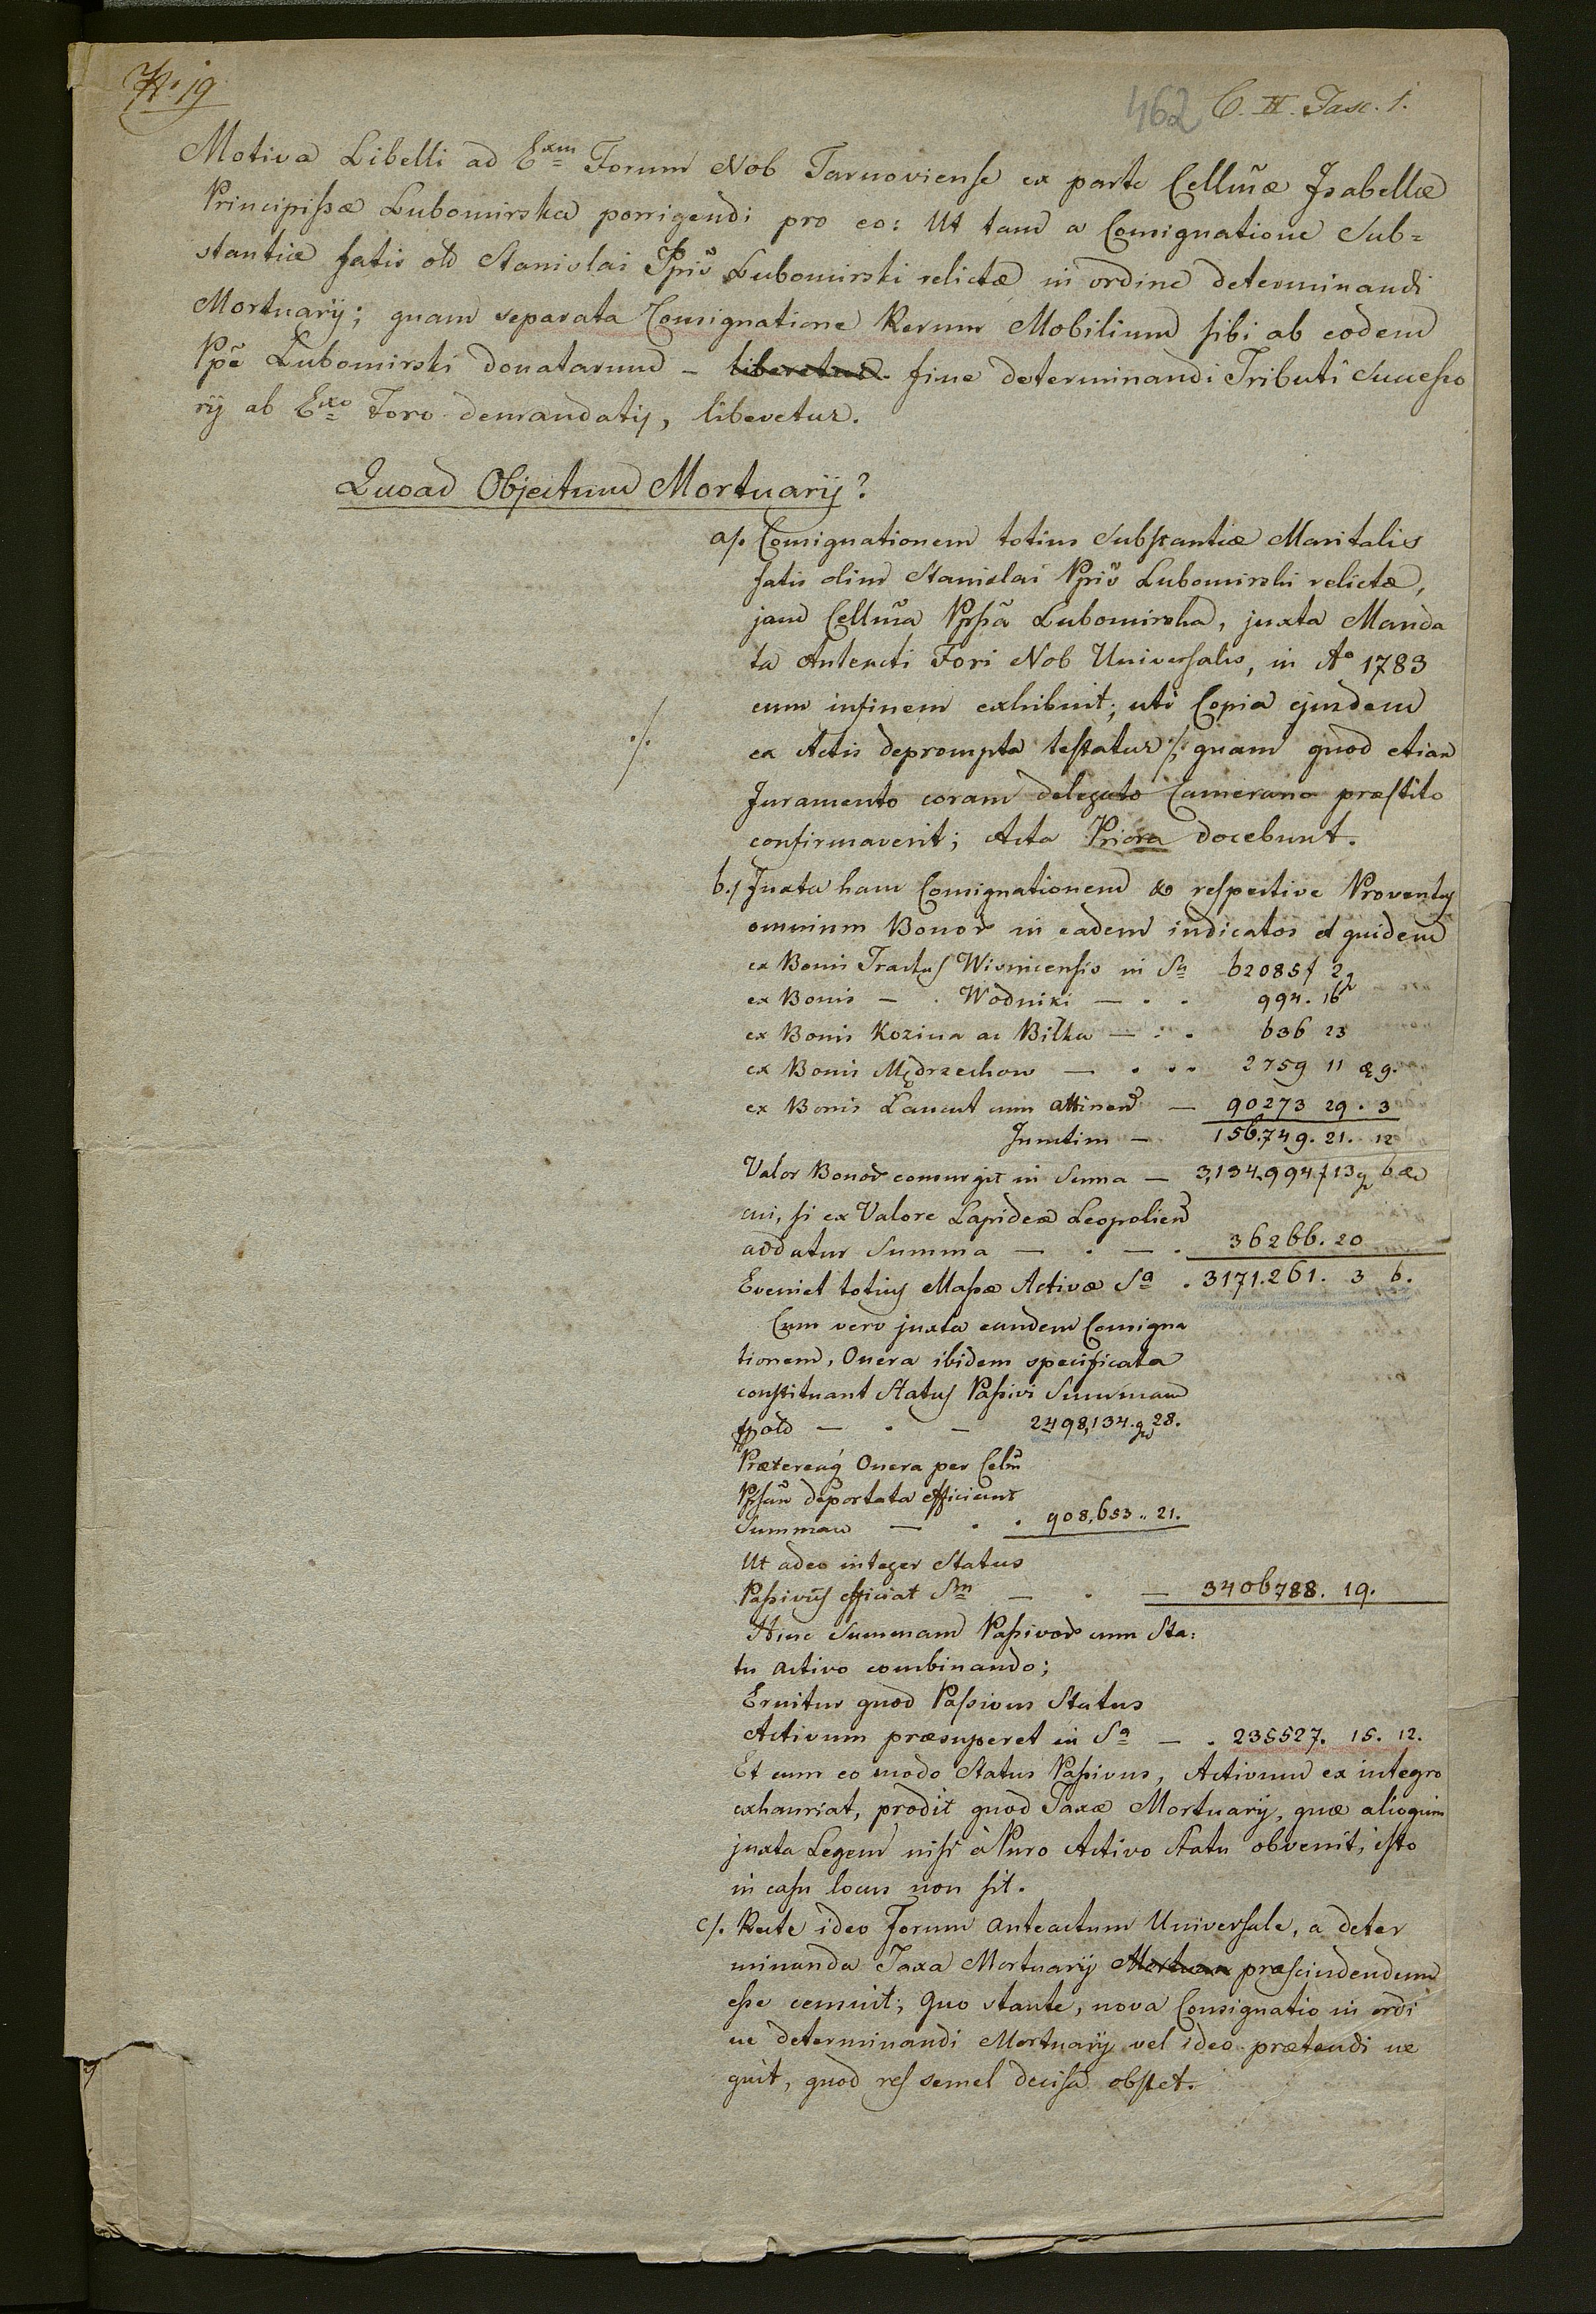 No 19
462 C. II. Fasc. 1.
Motiva Libelli ad Exm Forum Nob Tarnoviense ex parte Cellmæ Isabellæ
Principißæ Lubomirska porrigendi pro eo: Ut tam a Consignatione Sub=
stantiæ fatis old Stanislai Ppis Lubomirski relictæ in ordine determinandi
Mortuarij; quam separata Consignatione Rerum Mobilium sibi ab eodem
Ppe Lubomirski donatarum – liberetur fine determinandi Tributi Succeßo
rij ab Exo Foro demandatis, liberetur.
Quoad Objectum Mortuarij?
a/. Consignationem totius Substantiæ Maritalis
fatis olim Stanislai Ppis Lubomirski relictæ,
jam Cellma Ppßa Lubomirska, juxta Manda
ta Anteacti Fori Nob Universalis, in Ao 1783
cum infinem exhibuit; uti Copia ejusdem
./. ex Actis deprompta testatur ./. quam quod etiam
Juramento coram delegato Camerano præstito
confirmaverit; Acta Priora docebunt.
b./ Juxta hanc Consignationem & respective Proventus
omnium Bonor in eadem indicatos et quidem
ex Bonis Tractus Wisnicensis in Sn 62085 f 2 g
ex Bonis – . Wodniki – . . 994. 16
ex Bonis Kozina ac Bilka – . . 636 23
ex Bonis Mędrzechow – . . . 2759 11 & 9.
ex Bonis Łancut cum attinen – 90273 29. 3
Junctim – 156.749. 21. 12
Valor Bonor consurgit in Suma – 3,134,994 f 13 g 6 &
cui, si ex Valore Lapideæ Leopolien
addatur Summa – . – . 36266. 20
Eveniet totius Maßæ Activæ Sa . 3171.261. 3 6.
Cum vero juxta eandem Consigna
tionem, Onera ibidem specificata
constituant Status Paßivi Summam
fpold – . – 2498,134. g 28.
Prætereaq Onera per Celm
Ppßam deportata efficiunt
Summam – . . 908,653 .. 21.
Ut adeo integer Status
Paßivus efficiat Sm – . – 3406788. 19.
Hinc Summam Paßivor cum Sta:
tu activo combinando;
Eruitur quod Paßivus Status
Activum præsuperet in Sa – . 235527. 15. 12.
Et cum eo modo Status Paßivus, Activum ex integro
exhauriat, prodit quod Taxæ Mortuarij, quæ alioquin
juxta Legem nisi à Puro Activo Statu obvenit, isto
in casu locus non sit.
c/. Recte ideo Forum anteactum Universale, a deter
minanda Taxa Mortuarij Mortuar præscindendum
eße censuit; quo stante, nova Consignatio in ordi
ne determinandi Mortuarij vel ideo prætendi ne
quit, quod res semel decisa obstet.